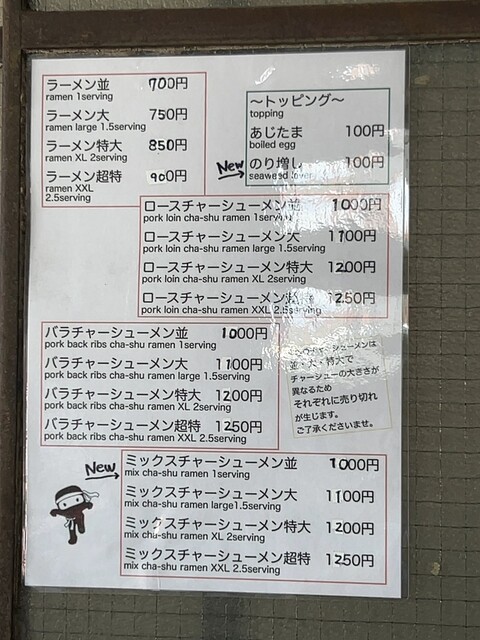 ラーメン並 700円
ramen 1serving
ラーメン大 750円
ramen large 1.5serving
ラーメン特大 850円
ramen XL 2serving
ラーメン超特 900円
ramen XXL
2.5serving
〜トッピング〜
topping
あじたま 100円
boiled egg
New
のり増し 100円
seaweed lover
ロースチャーシューメン並 1000円
pork loin cha-shu ramen 1serving
ロースチャーシューメン大 1100円
pork loin cha-shu ramen large 1.5serving
ロースチャーシューメン特大 1200円
pork loin cha-shu ramen XL 2serving
ロースチャーシューメン超特 1250円
pork loin cha-shu ramen XXL 2.5serving
バラチャーシューメン並 1000円
pork back ribs cha-shu ramen 1serving
バラチャーシューメン大 1100円
pork back ribs cha-shu ramen large 1.5serving
バラチャーシューメン特大 1200円
pork back ribs cha-shu ramen XL 2serving
バラチャーシューメン超特 1250円
pork back ribs cha-shu ramen XXL 2.5serving
チャーシューメンは
並・大・特大で
チャーシューの大きさが
異なるため
それぞれに売り切れ
が生じます。
ご了承くださいませ。
New
ミックスチャーシューメン並 1000円
mix cha-shu ramen 1serving
ミックスチャーシューメン大 1100円
mix cha-shu ramen large1.5serving
ミックスチャーシューメン特大 1200円
mix cha-shu ramen XL 2serving
ミックスチャーシューメン超特 1250円
mix cha-shu ramen XXL 2.5serving